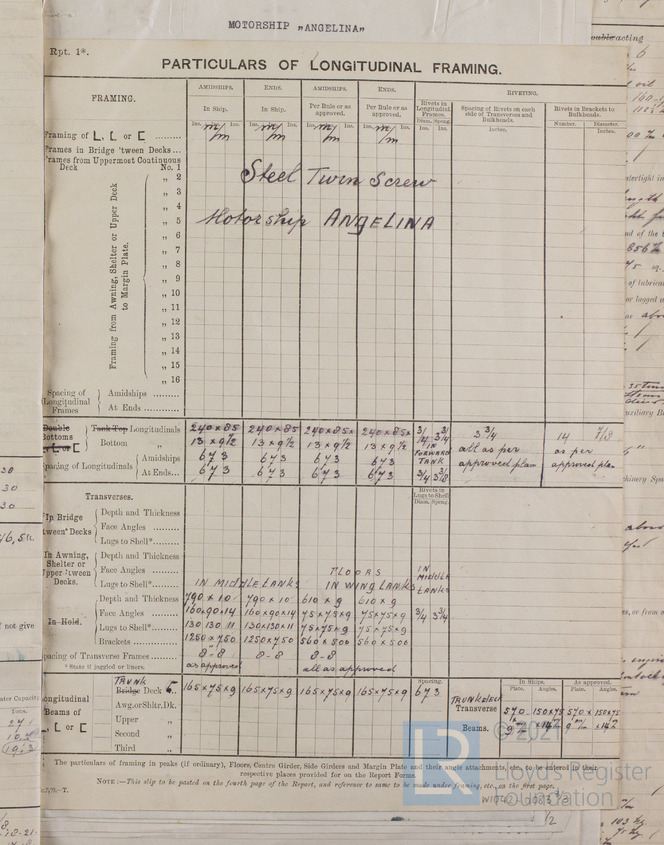 MOTORSHIP „ANGELINA"
Rpt. 1*.
PARTICULARS OF LONGITUDINAL FRAMING.
FRAMING.
AMIDSHIPS. ENDS. AMIDSHIPS. ENDS. RIVETING.
In Ship. In Ship. Per Rule or as approved. Per Rule or as approved.
Rivets in Longitudinal Frames. Spacing of Rivets on each side of Transverses and Bulkheads. Rivets in Brackets to Bulkheads.
Diam. Spcng. Inches. Number. Diameter. Inches.
Framing of L, [ or [ .........
Frames in Bridge 'tween Decks...
Frames from Uppermost Continuous Deck No. 1
„ 2
Steel Twin Screw
„ 3
„ 4
„ 5
Motorship ANGELINA
„ 6
„ 7
„ 8
„ 9
„ 10
„ 11
„ 12
„ 13
„ 14
„ 15
„ 16
Framing from Awning, Shelter or Upper Deck to Margin Plate.
Spacing of Longitudinal Frames
Amidships .........
At Ends ............
Double Bottoms Tank Top Longitudinals 240×85 240×85 240×85× 240×85× 3/4 3 3/4
Bottom „ 13×9½ 13×9½ 13×9½ 13×9½ IN FORWARD TANK
3 3/4 all as per approved plan
14 7/8 as per approved plan
Spacing of Longitudinals
Amidships 673 673 673 673
At Ends... 673 673 673 673
Transverses.
Rivets in Lugs to Shell
Diam. Spcng.
In Bridge 'tween Decks
Depth and Thickness
Face Angles .........
Lugs to Shell*......
In Awning, Shelter or Upper 'tween Decks.
Depth and Thickness
Face Angles ......... FLOORS
Lugs to Shell*...... IN MIDDLE TANKS IN WING TANKS IN MIDDLE TANKS
In Hold.
Depth and Thickness 790×10 790×10 610×9 610×9
Face Angles ......... 160×90×14 160×90×14 75×75×9 75×75×9 3/4 3 3/4
Lugs to Shell*...... 130 130 11 130×130×11 75×75×9 75×75×9
Brackets ............ 1250×750 1250×750 560×500 560×500
Spacing of Transverse Frames ...... 8-8 8-8 8-8
* State if joggled or liners. as approved all as approved
Longitudinal Beams of L or [
TRUNK
Bridge Deck 165×75×9 165×75×9 165×75×9 165×75×9
Spacing. 673
Awg. or Shltr. Dk.
Upper „
Second „
Third „
TRUNKdeck Transverse Beams.
In Ships. As approved.
Plate. Angles. Plate. Angles.
570 150×75 570 × 150×75
The particulars of framing in peaks (if ordinary), Floors, Centre Girder, Side Girders and Margin Plate and their angle attachments, etc., to be inserted in their respective places provided for on the Report Forms.
NOTE:—This slip to be pasted on the fourth page of the Report, and reference to same to be made under framing, etc., on the first page.
© 2021
LR
Lloyd's Register
Foundation
1/2